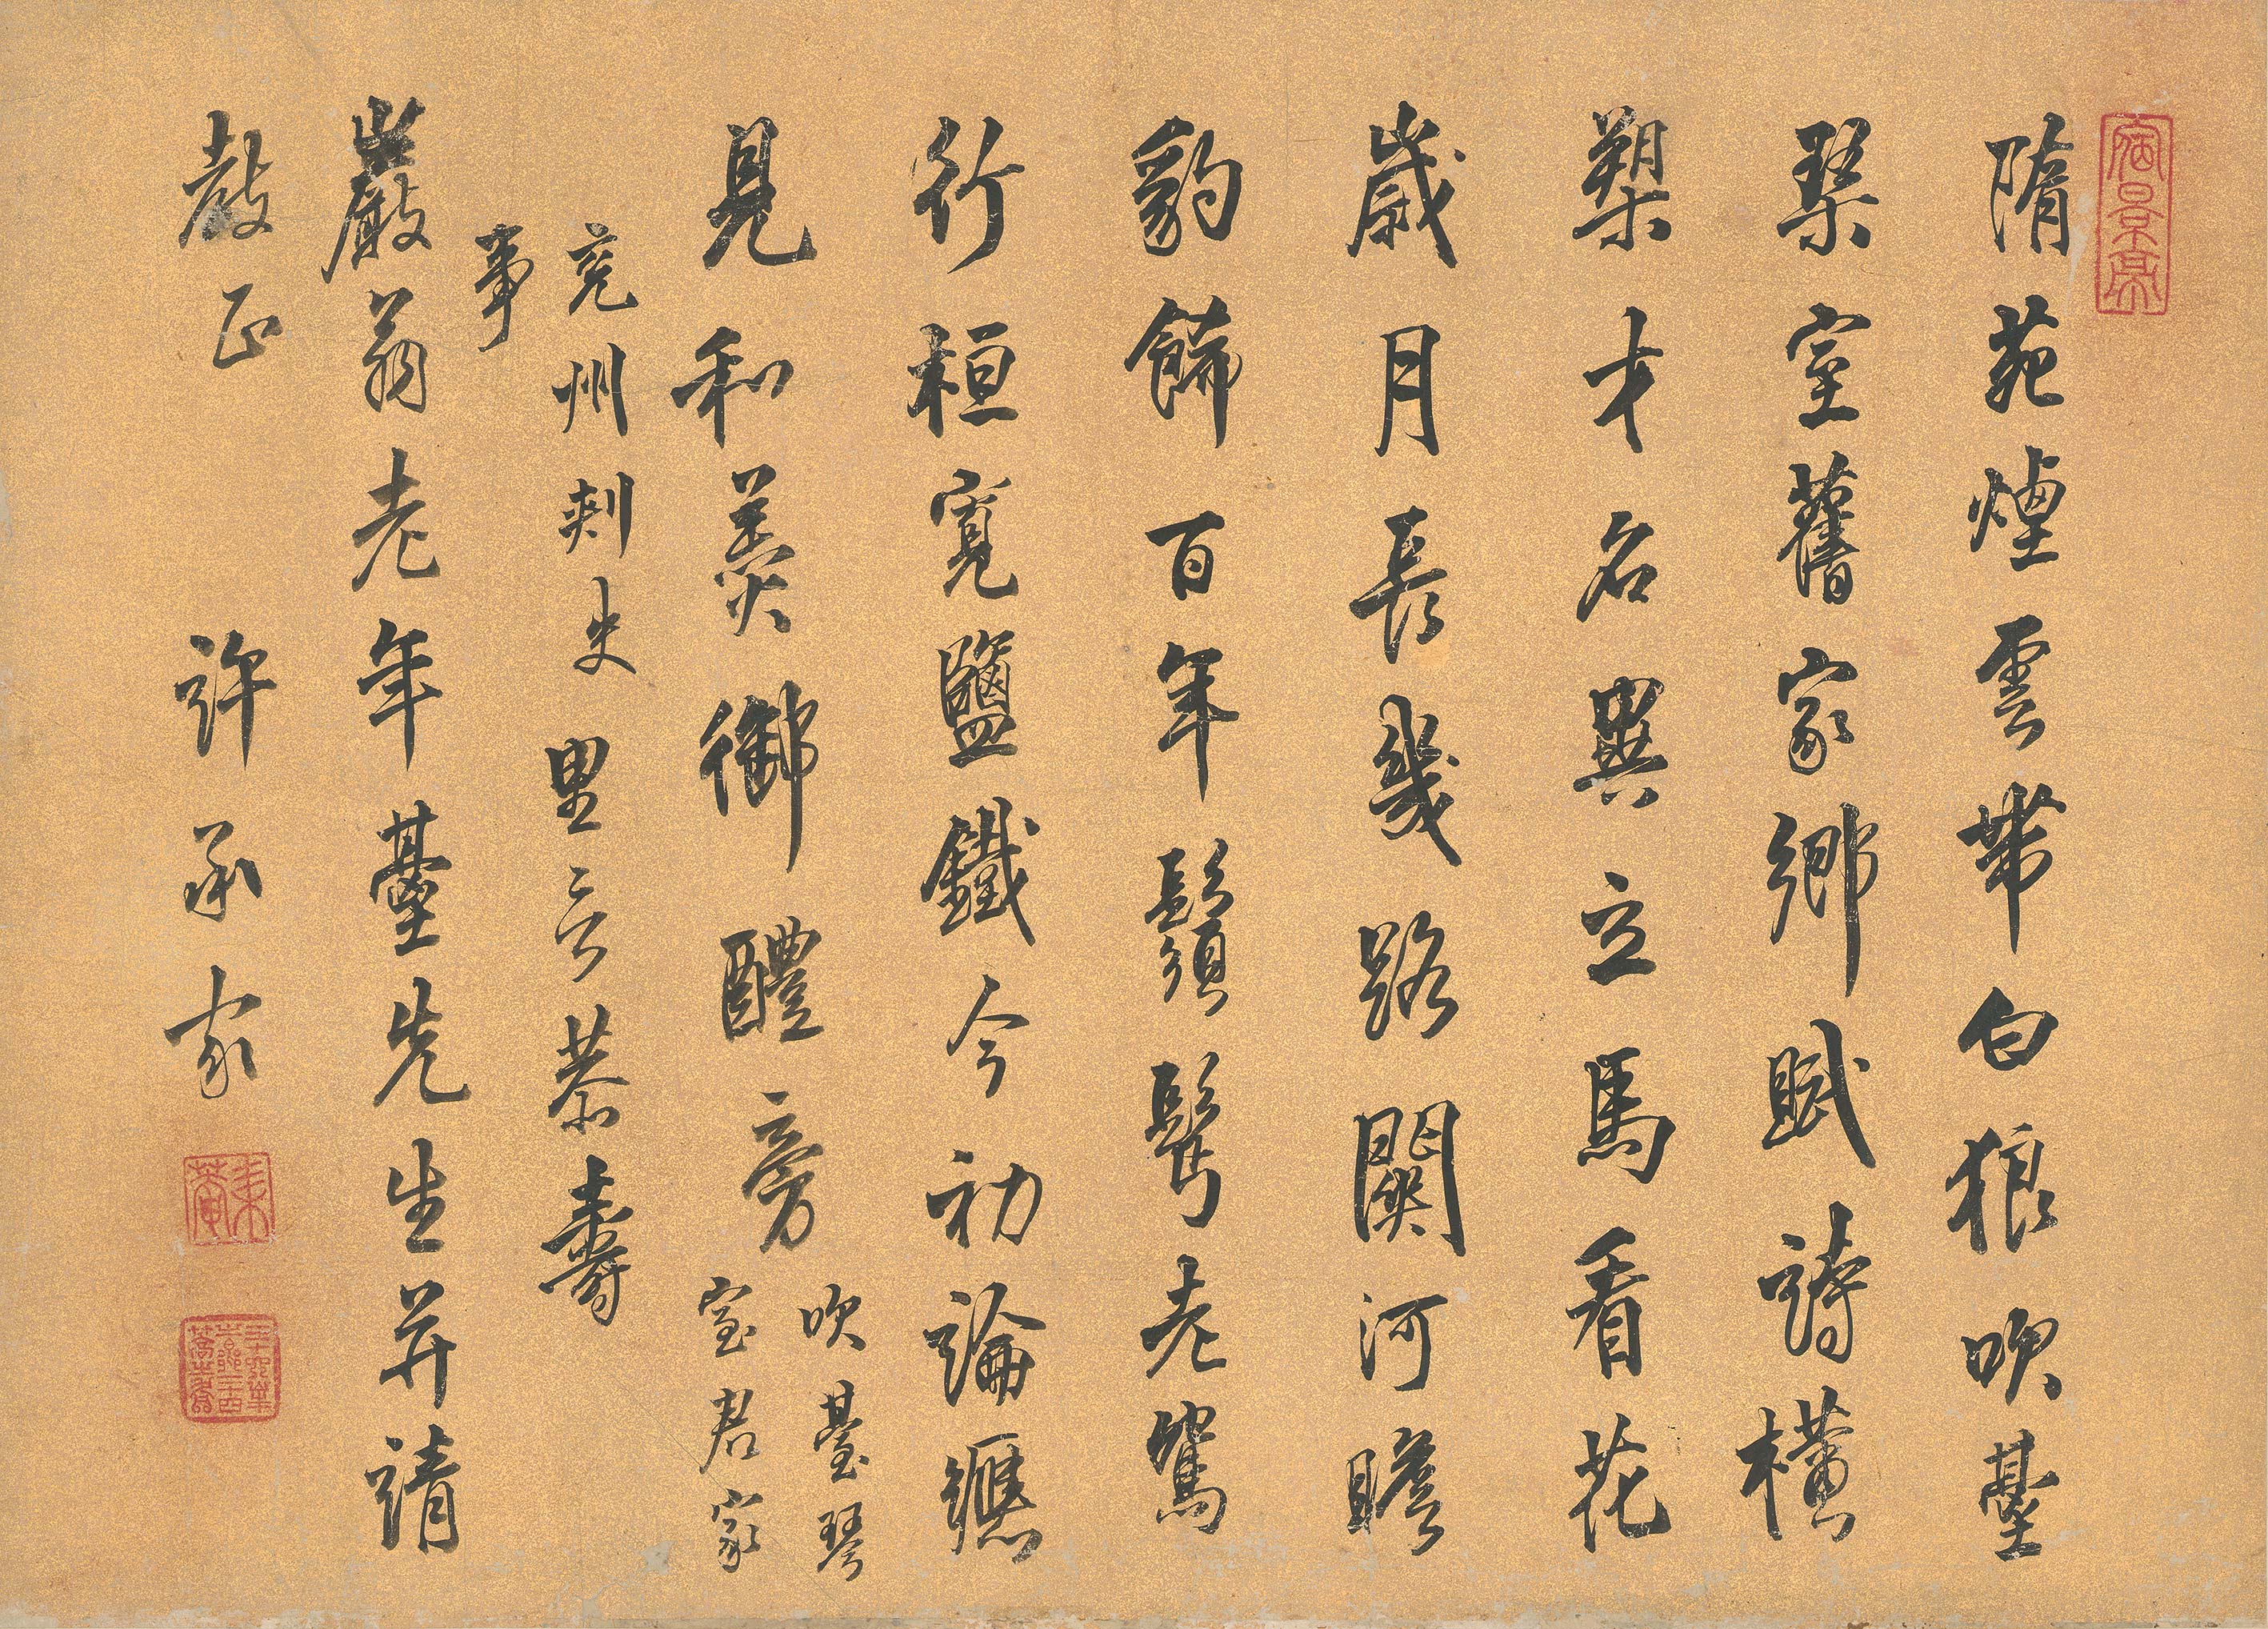 陶景亭
隋苑煙雲帶白狼吹臺
琴室舊家鄉賦詩橫
槊才名異立馬看花
歲月長幾路關河瞻
豹飾百年鬚鬢老鴛
行桓寬鹽鐵今初論應
見和羹御醴旁吹臺琴
室君家
兗州刺史
里言恭壽
事
嚴翁老年臺先生并請
教正
許承家